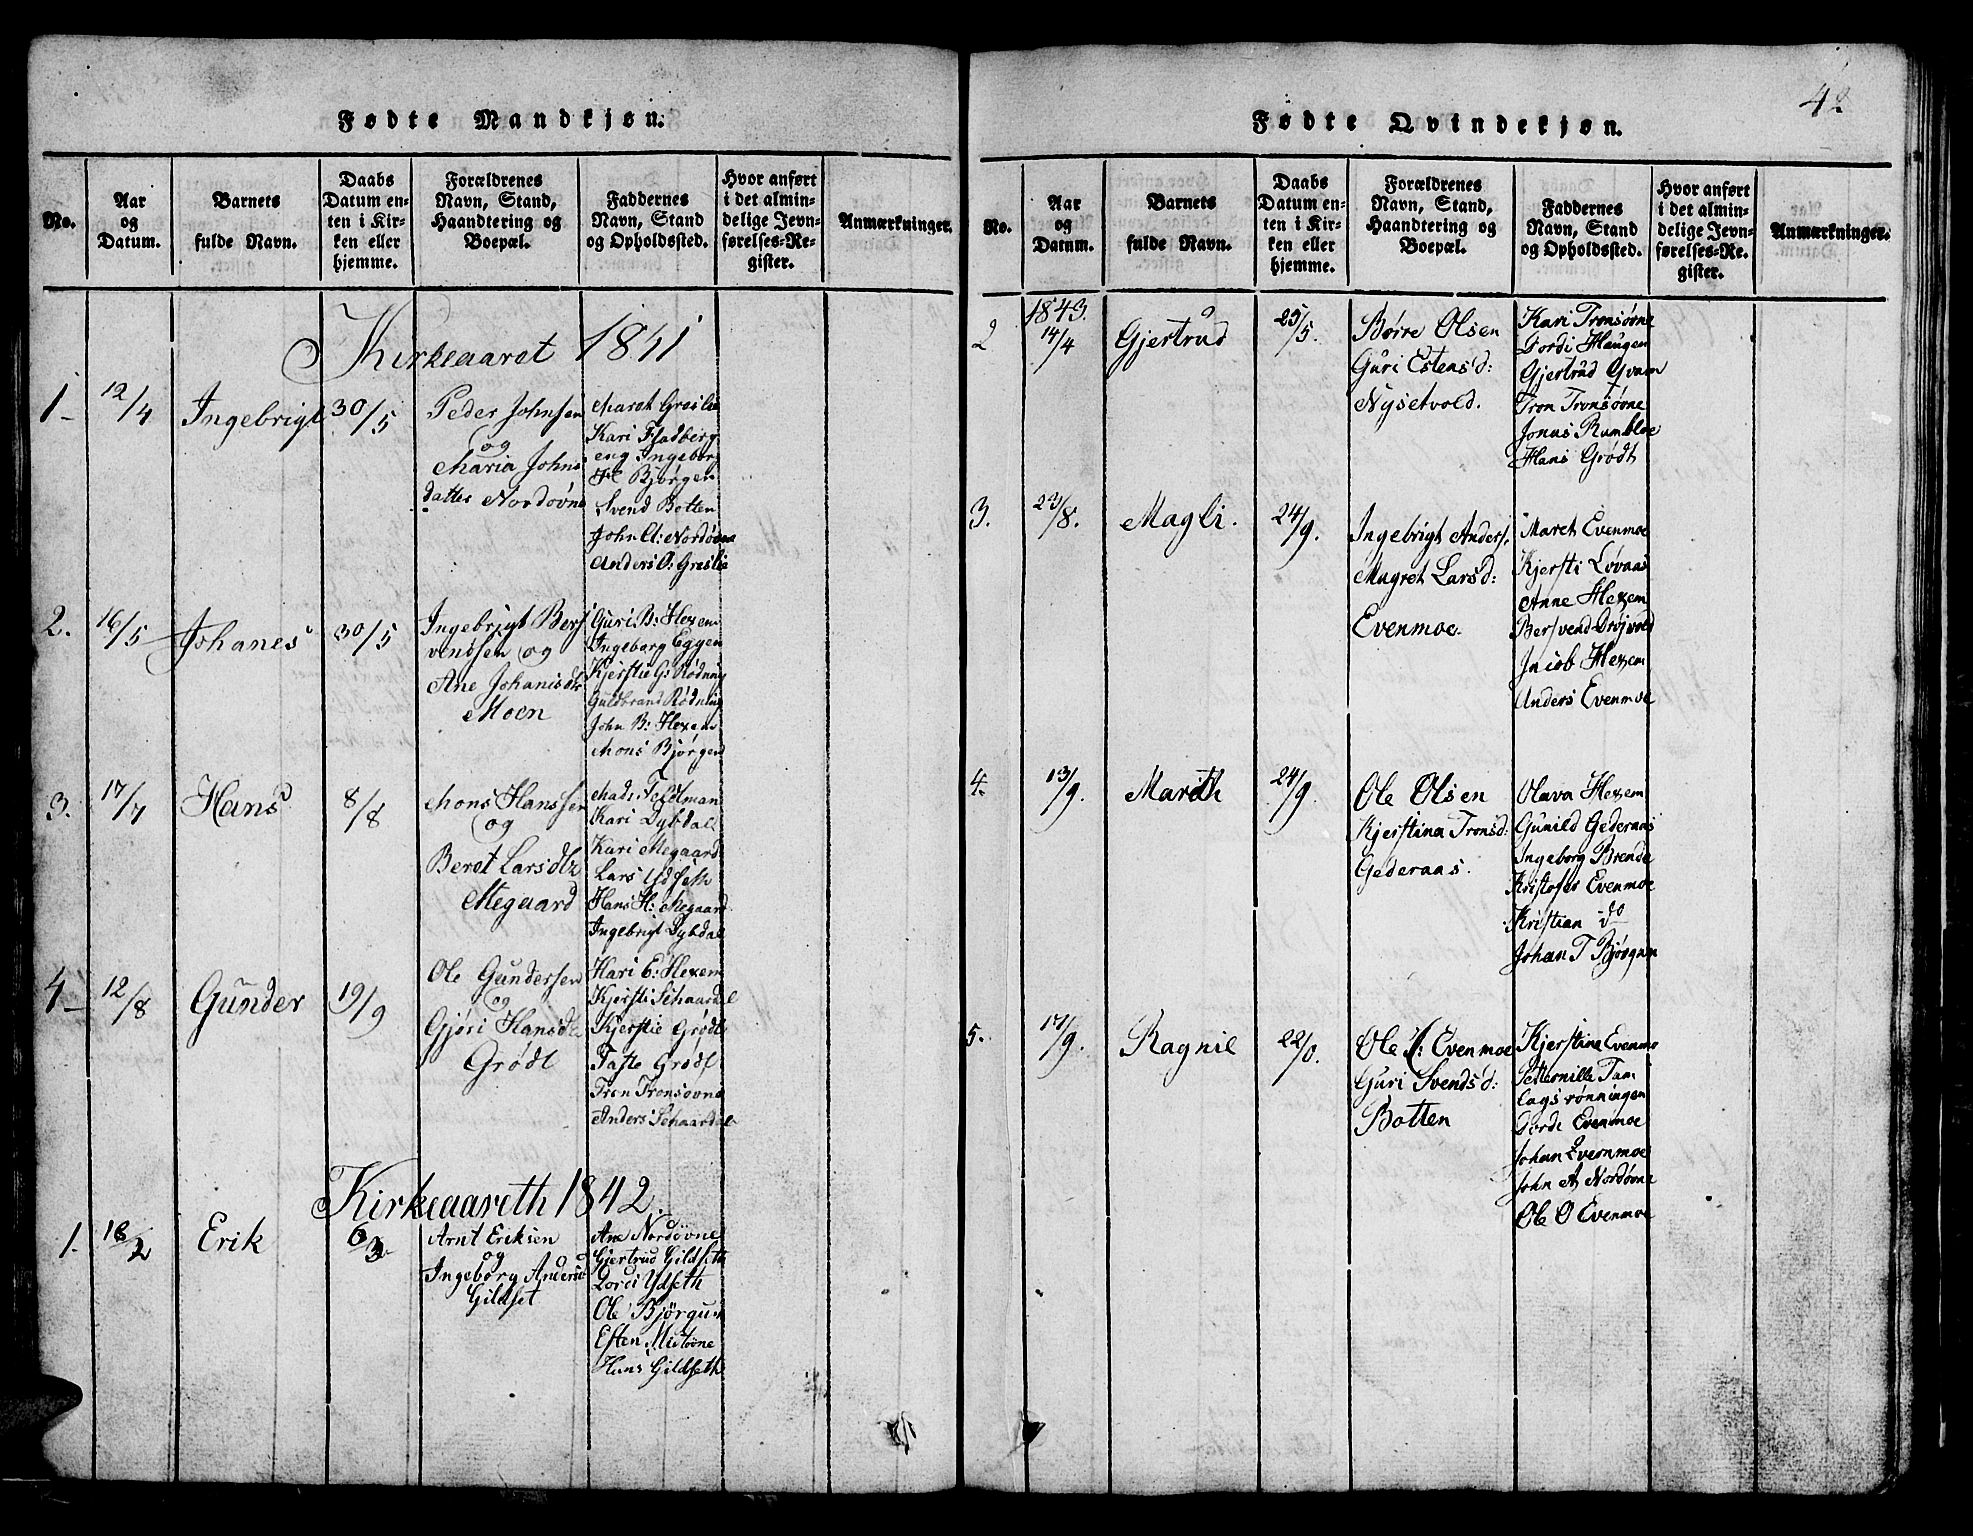 Fødte Mandkjøn.
No.
Aar
og
Datum.
Barnets
fulde Navn.
Daabs
Datum en-
ten i Kir-
ken eller
hjemme.
Forældrenes
Navn, Stand,
Haandtering og
Boepæl.
Faddernes
Navn, Stand
og Opholdssted.
Hvor anført
i det almin-
delige Jevn-
førelses-Re-
gister.
Anmærkninger.
Kirkeaaret 1841
1 12/4 Ingebrigt 30/5
Peder Johnsen
og
Maria Johns
datter Nordøvne
Maret Greslie
Kari Fladberg
eng Ingebor
Bjørgen
Svend Botten
John A: Nordøvne
Anders O: Greslie
2. 16/5 Johanes 30/5
Ingebrigt Ber
vendsen og
Ane Johanisdtr
Moen
Guri B: Hexem
Ingeborg Eggen
Kjerstie G: Rødning
Guldbrand Rødning
John B: Hexem
Mons Bjørgen
3. 17/7 Hans 8/8
Mons Hanssen
og
Beret Larsdtr
Megaard
Mads Feldtman
Kari Dybdal
Kari Megaard
Lars Ydseth
Hans H: Megaard
Ingebrigt Dybdal
4 12/8 Gunder 19/9
Ole Gundersen
og
Gjøri Hansdtr
Grødt
Kari E: Hexem
Kjersti Schaardal
Kjerstie Grødt
Faste Grødt
Tron Tronsovne
Anders Schaardal
Kirkeaareth 1842.
1. 18/2 Erik 6/3
Arnt Eriksen
og
Ingeborg Andersd
Gildset
Ane Nordövne
Gjertrud Gildseth
Dordi Ydseth
Ole Bjørgum
Esten Mistovne
Hans Gildseth
42
Fødte Qvindekjøn.
No.
Aar
og
Datum.
Barnets
fulde Navn.
Daabs
Datum en-
ten i Kir-
ken eller
hjemme.
Forældrenes
Navn, Stand,
Haandtering og
Boepæl.
Faddernes
Navn, Stand
og Opholdssted.
Hvor anført
i det almin-
delige Jevn-
førelses-Re-
gister.
Anmærkninger.
1843.
2 14/4 Gjertrud 25/5.
Børre Olsen
Guri Estensd:
Nysetvold.
Kari Tronsøvne
Dordi Haugen
Gjertrud Qvam
Tron Tronsøvne
Jonas Rumbloe
Hans Grødt
3. 23/8. Magli. 24/9.
Ingebrigt Anders.
Magret Larsd:
Evenmoe.
Maret Evenmoe
Kjersti Løvaas
Anne Hexem
Bersvend Drøjvold
Jacob Hexem
Anders Evenmoe
4. 13/9. Marith 24/9.
Ole Olsen
Kjerstina Tronsd:
Gederaas.
Olava Hexem
Gunild Gederaas
Ingeborg Brende
Kristofer Evenmoe
Kristian do
Johan T Bjørgum
5. 17/9. Ragnil 22/0.
Ole : Evenmoe
Guri Svendsd:
Botten
Kjerstine Evenmo
Petternille Tam
lagsrønningen
Dordi Evenmoe
Johan Evernmoe
John A Nordøvne
Ole O Evenmoe